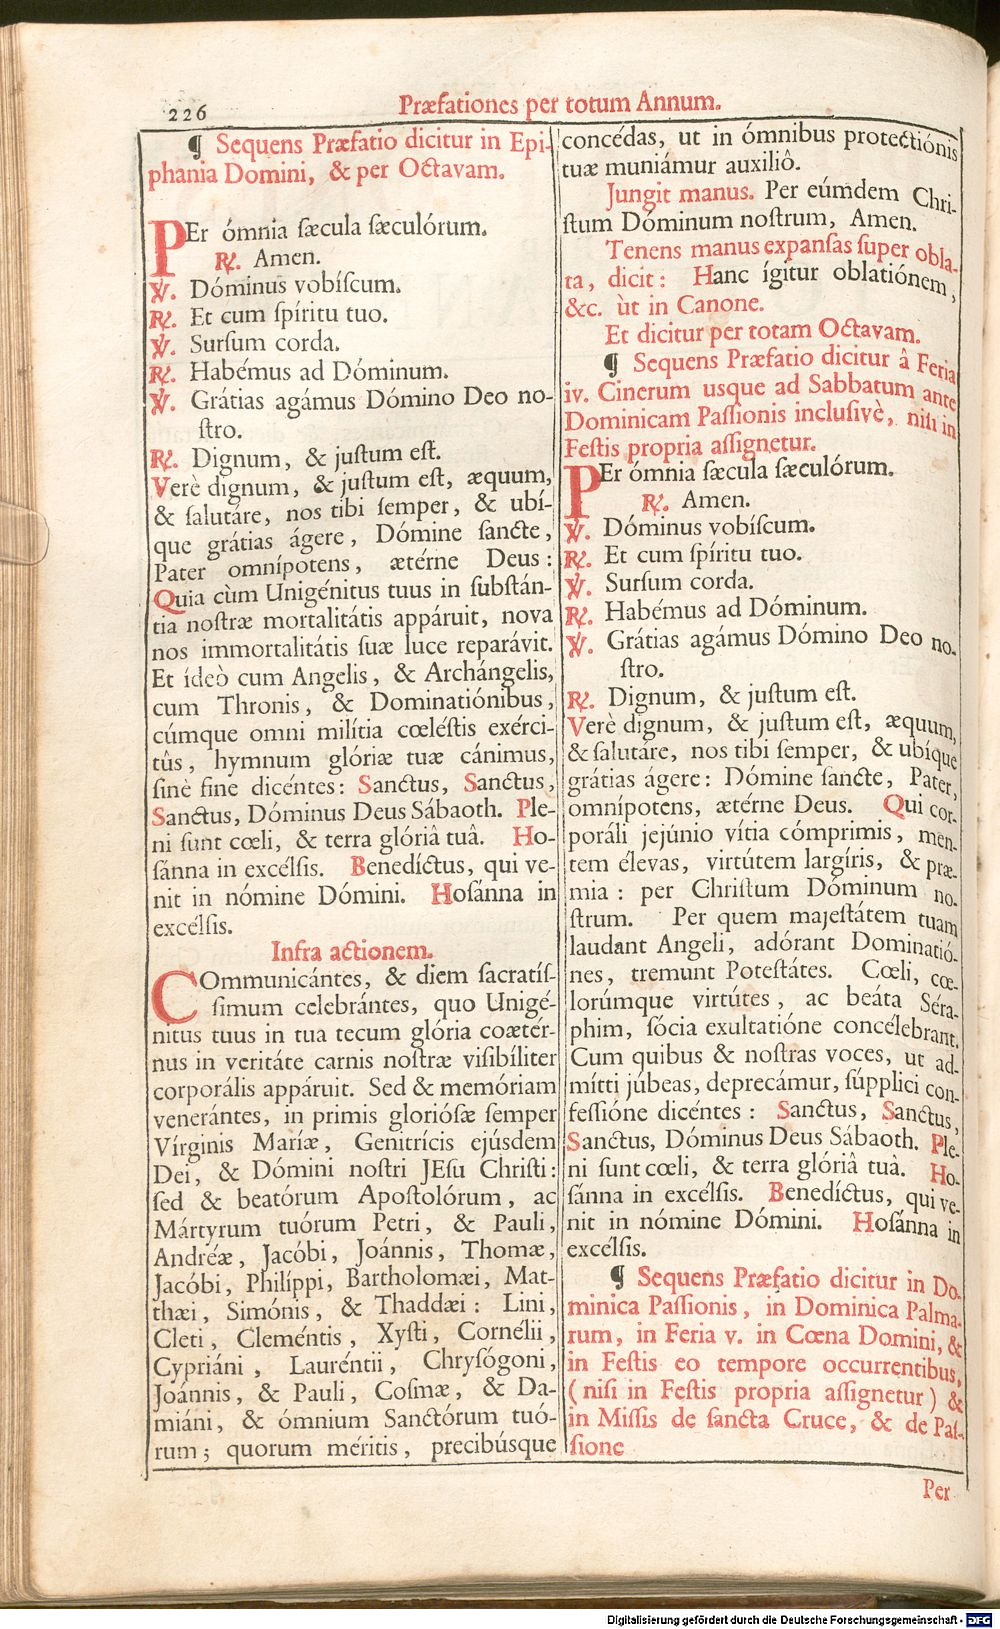 226
Præfationes per totum Annum.
¶ Sequens Præfatio dicitur in Epi-
phania Domini, & per Octavam.
PEr ómnia ſæcula ſæculórum.
℟. Amen.
℣. Dóminus vobíſcum.
℟. Et cum ſpíritu tuo.
℣. Surſum corda.
℟. Habémus ad Dóminum.
℣. Grátias agámus Dómino Deo no-
ſtro.
℟. Dignum, & juſtum eſt.
Verè dignum, & juſtum eſt, æquum,
& ſalutáre, nos tibi ſemper, & ubí-
que grátias ágere, Dómine ſancte,
Pater omnípotens, ætérne Deus:
Quia cùm Unigénitus tuus in ſubſtán-
tia noſtræ mortalitátis appáruit, nova
nos immortalitátis ſuæ luce reparávit.
Et ídeò cum Angelis, & Archángelis,
cum Thronis, & Dominatiónibus,
cúmque omni milítia cœléſtis exérci-
tûs, hymnum glóriæ tuæ cánimus,
ſine fine dicéntes: Sanctus, Sanctus,
Sanctus, Dóminus Deus Sábaoth. Ple-
ni ſunt cœli, & terra glóriâ tuâ. Ho-
ſánna in excélſis. Benedíctus, qui ve-
nit in nómine Dómini. Hoſánna in
excélſis.
Infra actionem.
COmmunicántes, & diem ſacratíſ-
ſimum celebrántes, quo Unigé-
nitus tuus in tua tecum glória coætér-
nus in veritáte carnis noſtræ viſibíliter
corporális appáruit. Sed & memóriam
venerántes, in primis glorióſæ ſemper
Vírginis Maríæ, Genitrícis ejúsdem
Dei, & Dómini noſtri JEſu Chriſti:
ſed & beatórum Apoſtolórum, ac
Mártyrum tuórum Petri, & Pauli,
Andréæ, Jacóbi, Joánnis, Thomæ,
Jacóbi, Philíppi, Bartholomæi, Mat-
thæi, Simónis, & Thaddæi: Lini,
Cleti, Cleméntis, Xyſti, Cornélii,
Cypriáni, Lauréntii, Chryſógoni,
Joánnis, & Pauli, Coſmæ, & Da-
miáni, & ómnium Sanctórum tuó-
rum; quorum méritis, precibúsque
concédas, ut in ómnibus protectiónis
tuæ muniámur auxiliô.
Jungit manus. Per eúmdem Chri-
ſtum Dóminum noſtrum, Amen.
Tenens manus expanſas ſuper obla-
ta, dicit: Hanc ígitur oblatiónem,
&c. ùt in Canone.
Et dicitur per totam Octavam.
¶ Sequens Præfatio dicitur â Feria
iv. Cinerum usque ad Sabbatum ante
Dominicam Paſſionis incluſivè, niſi in
Feſtis propria aſſignetur.
PEr ómnia ſæcula ſæculórum.
℟. Amen.
℣. Dóminus vobíſcum.
℟. Et cum ſpíritu tuo.
℣. Surſum corda.
℟. Habémus ad Dóminum.
℣. Grátias agámus Dómino Deo no-
ſtro.
℟. Dignum, & juſtum eſt.
Verè dignum, & juſtum eſt, æquum,
& ſalutáre, nos tibi ſemper, & ubíque
grátias ágere: Dómine ſancte, Pater,
omnípotens, ætérne Deus. Qui cor-
poráli jejúnio vítia cómprimis, men-
tem élevas, virtútem largíris, & præ-
mia: per Chriſtum Dóminum no-
ſtrum. Per quem majeſtátem tuam
laudant Angeli, adórant Dominatió-
nes, tremunt Poteſtátes. Cœli, cœ-
lorúmque virtútes, ac beáta Séra-
phim, ſócia exultatióne concélebrant.
Cum quibus & noſtras voces, ut ad-
mítti júbeas, deprecámur, ſúpplici con-
feſſióne dicéntes: Sanctus, Sanctus,
Sanctus, Dóminus Deus Sábaoth. Ple-
ni ſunt cœli, & terra glóriâ tuà. Ho-
ſánna in excélſis. Benedíctus, qui ve-
nit in nómine Dómini. Hoſánna in
excélſis.
¶ Sequens Præfatio dicitur in Do-
minica Paſſionis, in Dominica Palma-
rum, in Feria v. in Cœna Domini, &
in Feſtis eo tempore occurrentibus,
(niſi in Feſtis propria aſſignetur) &
in Miſſis de ſancta Cruce, & de Paſ-
ſione
Per
Digitalisierung gefördert durch die Deutsche Forschungsgemeinschaft - DFG